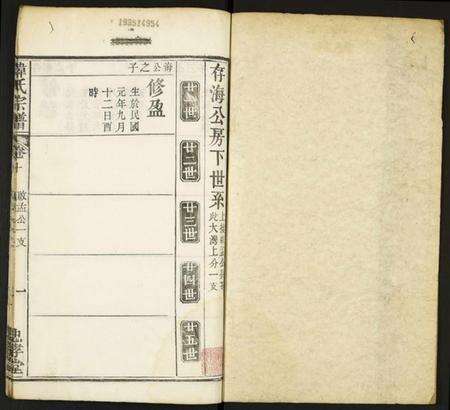 199514954
存海公房下世系
此大灣上分一支
廿一世
廿二世
廿三世
廿四世
廿五世
海公之子
修盈
生於民國
元年九月
十二日酉
時
韓氏宗譜
卷十
啟孟公一支
一
忠孝堂